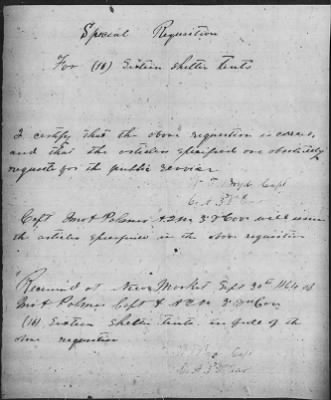 Special Requisition
For (16) Sixteen Shelter Tents
I certify that the above requisition is correct,
and that the articles specified are absolutely
requisite for the public service
Capt
Capt Jno A Palmer A.Q.M. 3d Cav will issue
the articles specified in the above requisition
Received at New Market Sept 30th 1864 of
Jno A Palmer Capt & A.Q.M. 3d Cav
(16) Sixteen Shelter tents in full of the
above requisition
Capt